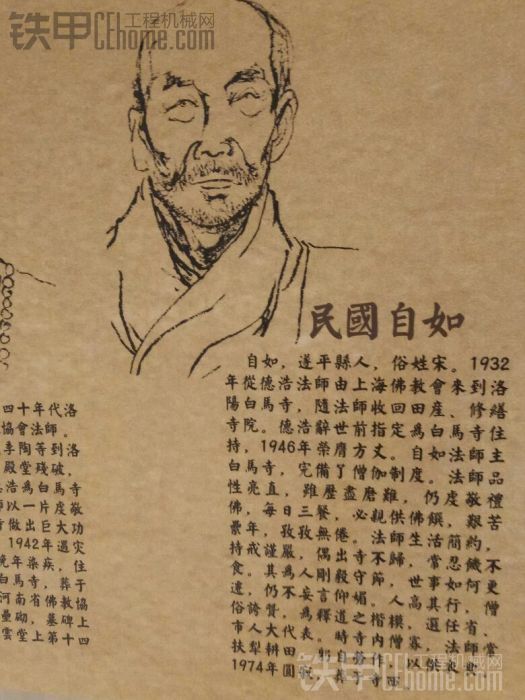 铁甲 工程机械网
CEhome.com
民國自如
自如，遂平縣人，俗姓宋。1932
年從德浩法師由上海佛教會來到洛
陽白馬寺，隨法師收回田産、修繕
寺院。德浩辭世前指定爲白馬寺住
持，1946年榮膺方丈。自如法師主
白馬寺，完備了僧伽制度。法師品
性亮直，雖歷盡磨難，仍虔敬禮
佛，每日三餐，必親供佛饌，艱苦
纍年，孜孜無倦。法師生活簡約，
持戒謹嚴，偶出寺不歸，常忍饑不
食。其爲人剛毅守節，世事如何更
遷，仍不妄言仰媚。人高其行，僧
俗誇贊，爲釋道之楷模，選任省、
市人大代表。時寺内僧寡，法師常
扶犁耕田，躬自勞作，以供
1974年圓寂，葬于寺西
四十年代洛
協會法師。
李陶等到洛
殿堂殘破，
浩爲白馬寺
師以一片虔敬
寺做出巨大功
1942年遇灾
晚年染疾，住
白馬寺，葬于
河南省佛教協
壘砌，墓碑上
雲堂上第十四
铁甲 工程机械网
CEhome.com